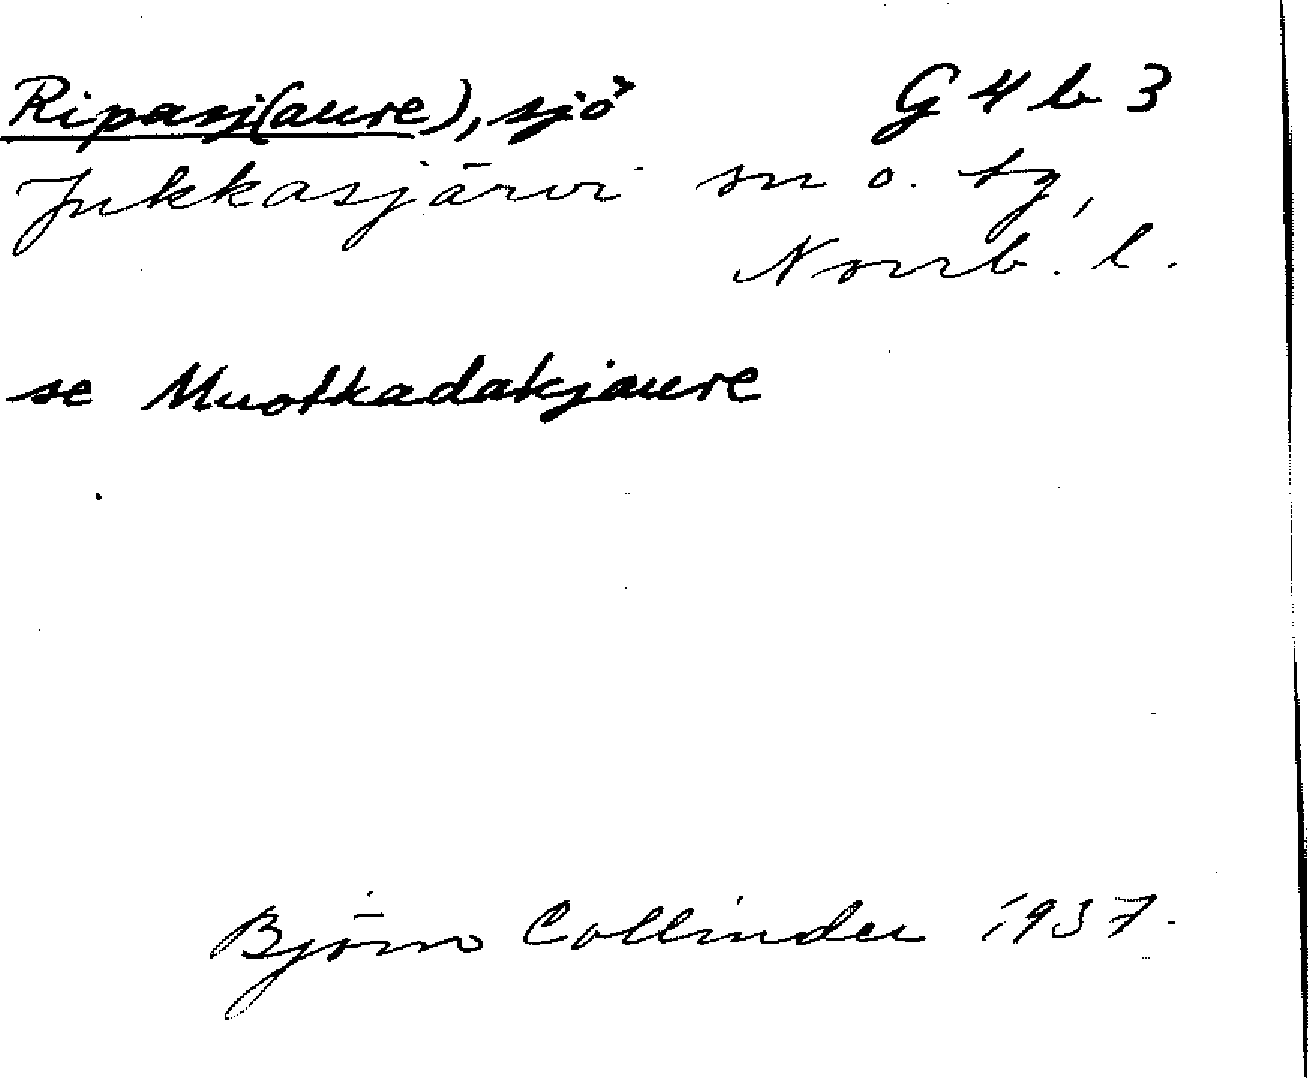 Ripasj(aure), sjö G 4 b 3
Jukkasjärvi sn o. tg,
Norrb. l.
se Muotkadakjaure
Björn Collinder 1937.